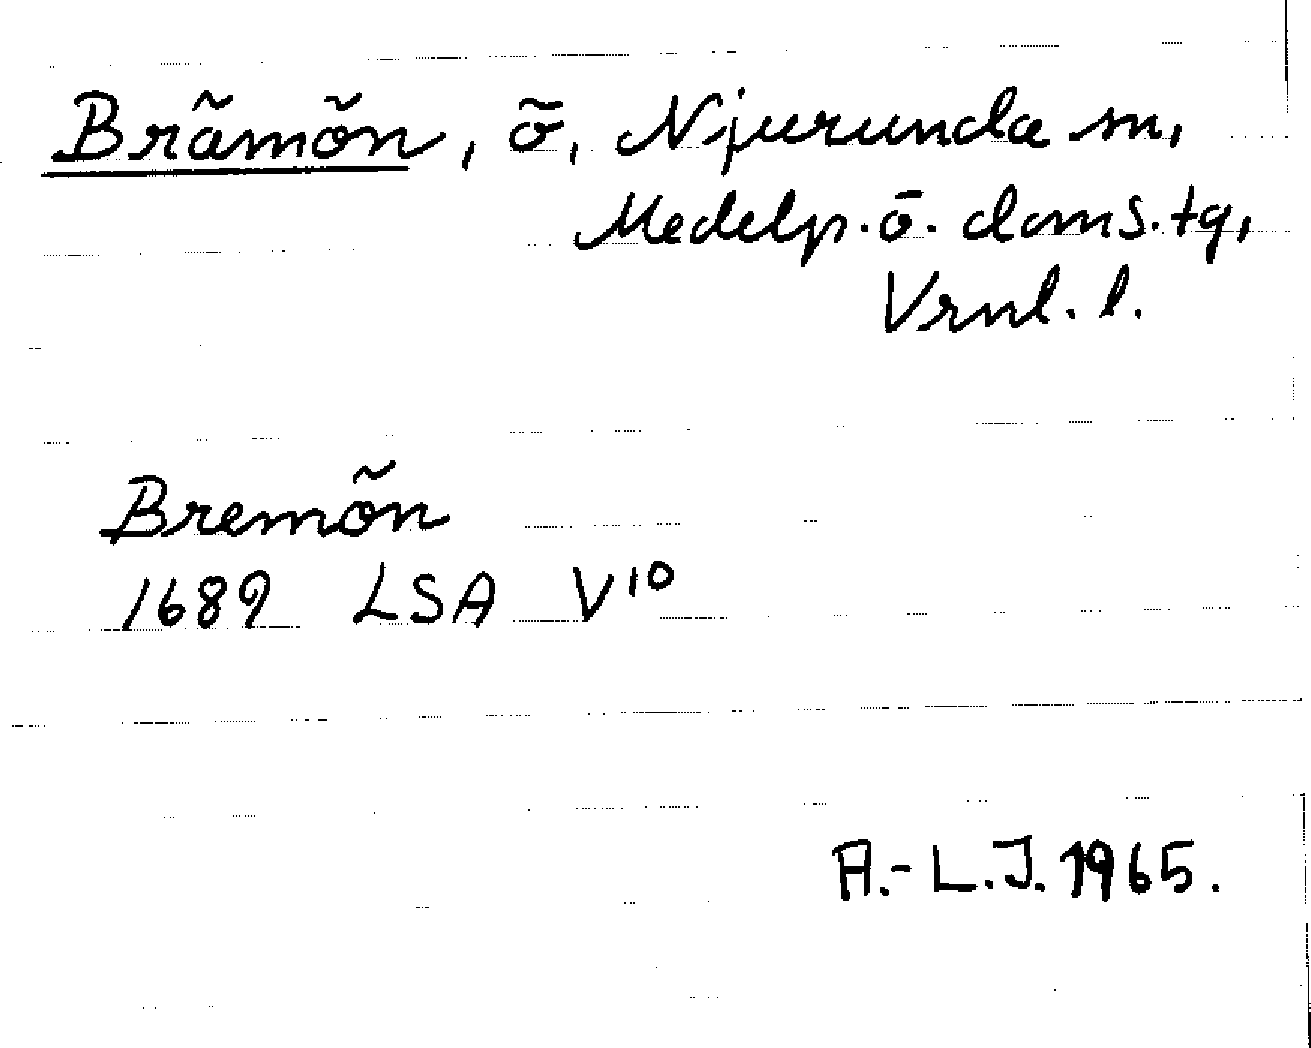 Brämön, ö, Njurunda sn,
Medelp. ö. doms. tg,
Vrnl. l.
Bremön
1689 LSA V10
A.-L.J. 1965.